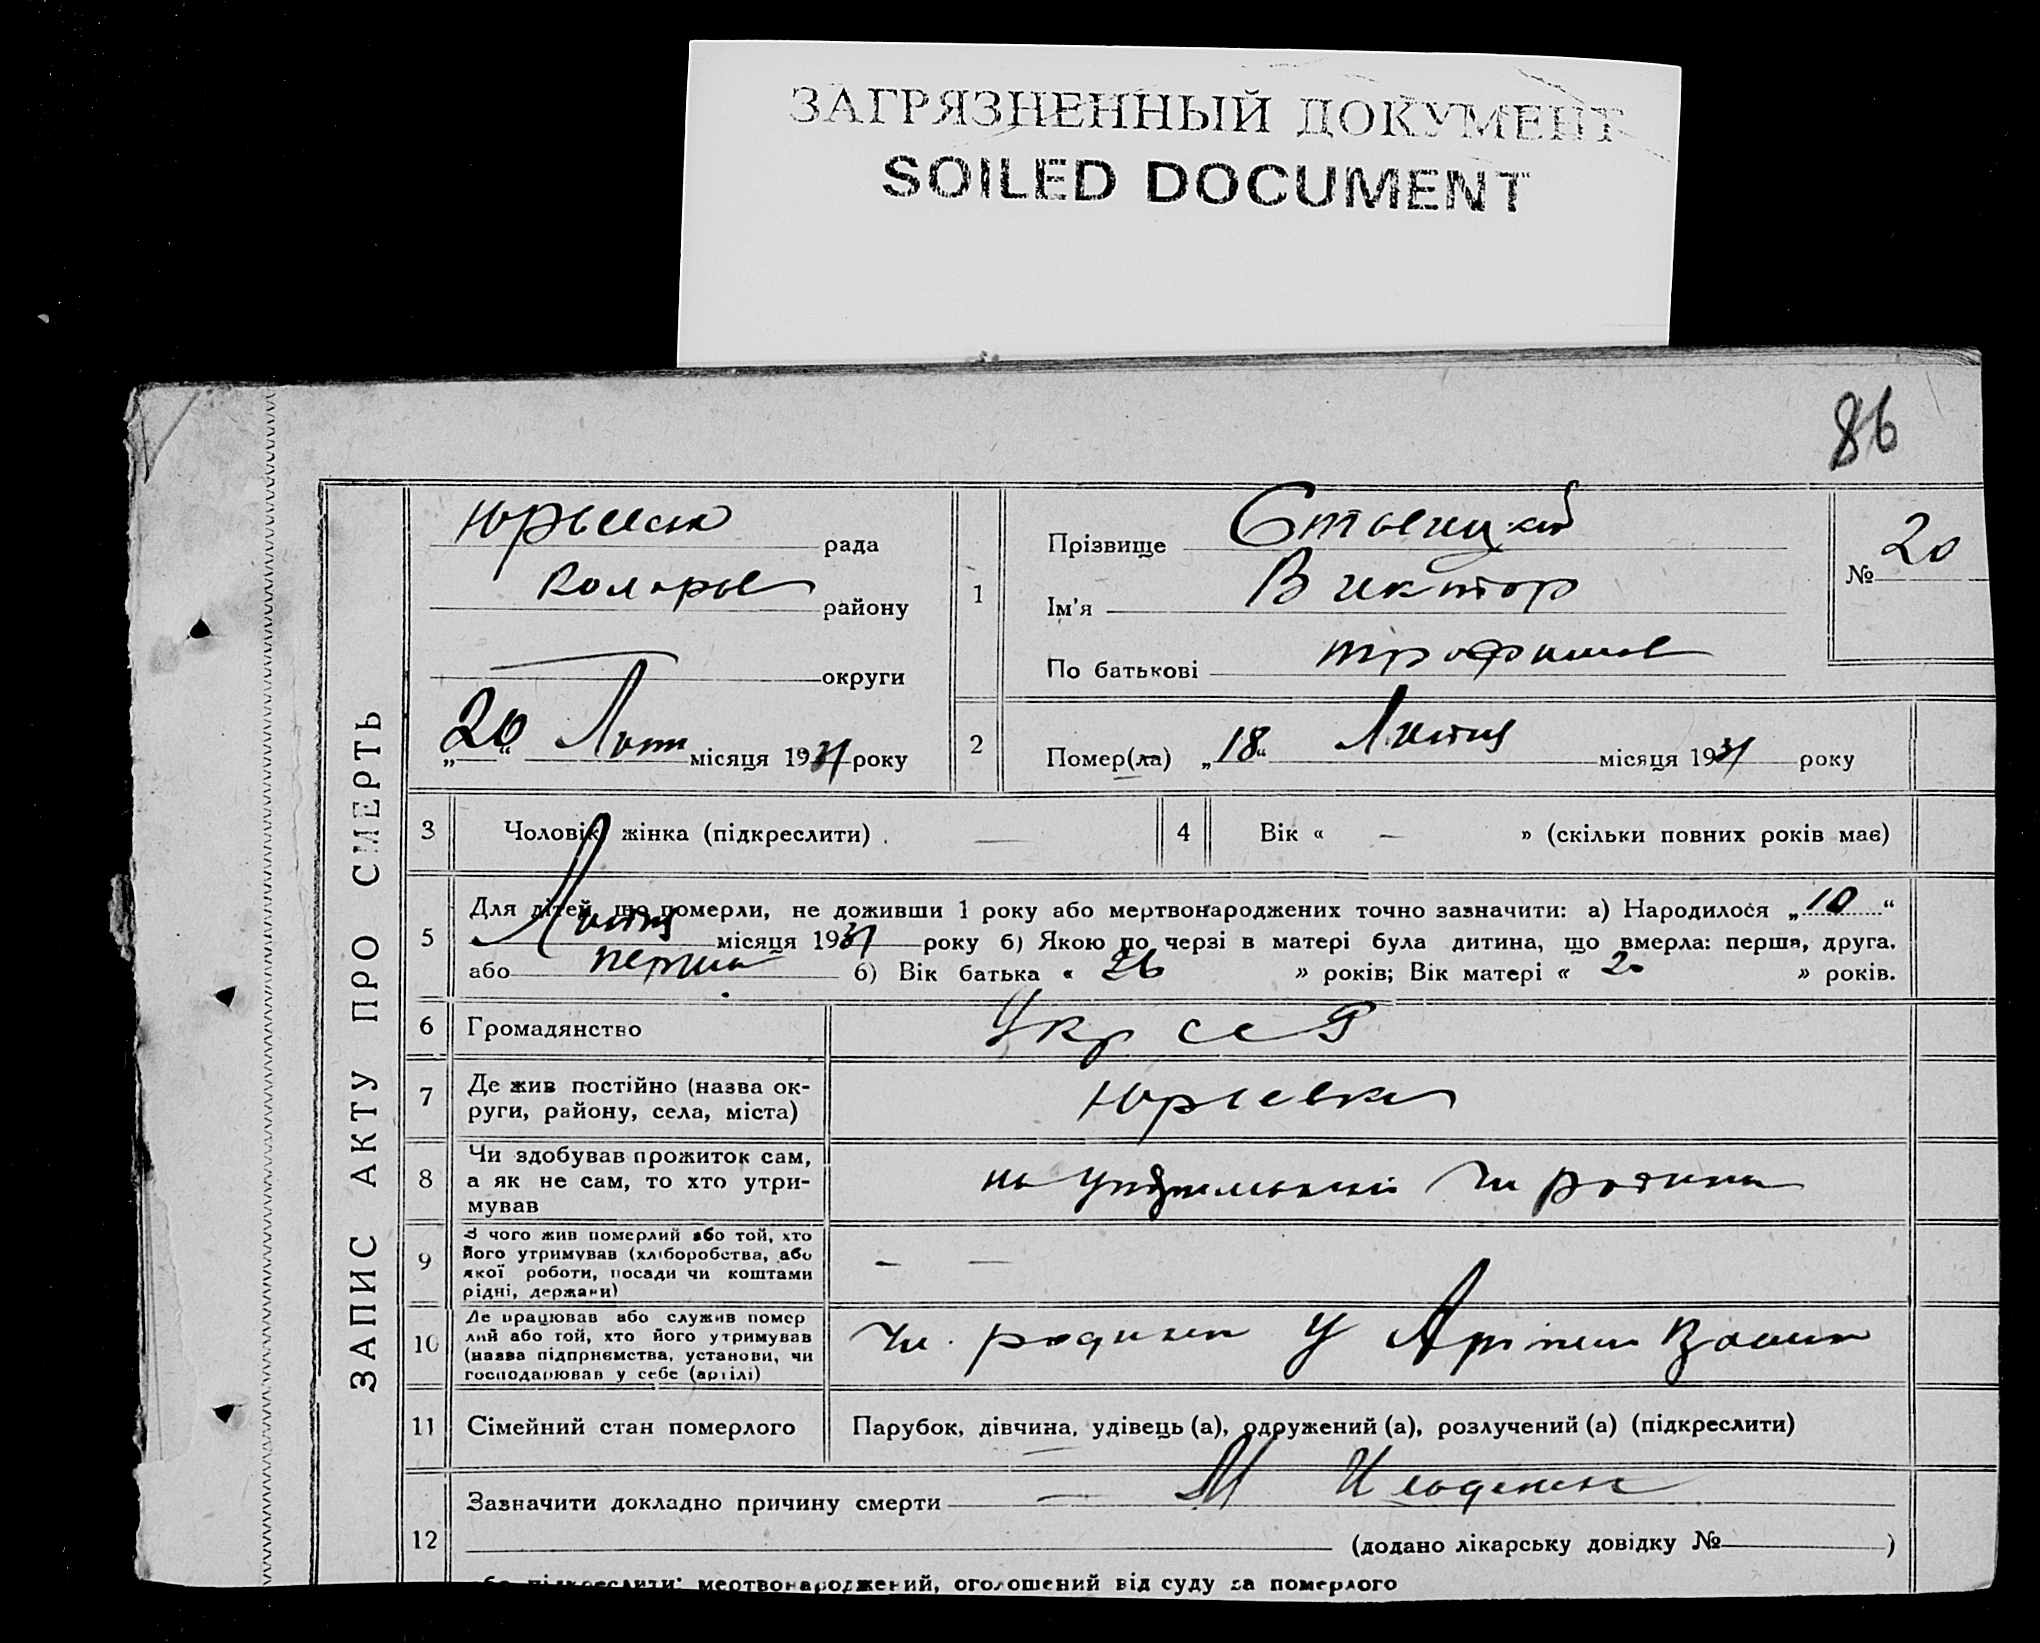 ЗАГРЯЗНЕННЫЙ ДОКУМЕНТ
SOILED DOCUMENT
86
ЗАПИС АКТУ ПРО СМЕРТЬ
рада
району
округи
„20“ місяця 1931 року
1
Прізвище
Ім'я Виктор
По батькові трофимов
№ 20
2
Помер(ла) „18“ Лютня місяця 1931 року
3
Чоловік, жінка (підкреслити).
4
Вік « — » (скільки повних років має)
5
Для дітей, що померли, не доживши 1 року або мертвонароджених точно зазначити: а) Народилося „10“
Лютня місяця 1931 року б) Якою по черзі в матері була дитина, що вмерла: перша, друга,
або перша б) Вік батька « 26 » років; Вік матері « 20 » років.
6
Громадянство
Укр ССР
7
Де жив постійно (назва ок-
руги, району, села, міста)
Юрьевка
8
Чи здобував прожиток сам,
а як не сам, то хто утри-
мував
на родини
9
З чого жив померлий або той, хто
його утримував (хліборобства, або
якої роботи, посади чи коштами
рідні, держави)
— —
10
Де працював або служив помер
лий або той, хто його утримував
(назва підприємства, установи, чи
господарював у себе (артілі)
родини у
11
Сімейний стан померлого
Парубок, дівчина, удівець (а), одружений (а), розлучений (а) (підкреслити)
12
Зазначити докладно причину смерти —
(додано лікарську довідку № )
або підкреслити: мертвонароджений, оголошений від суду за померлого